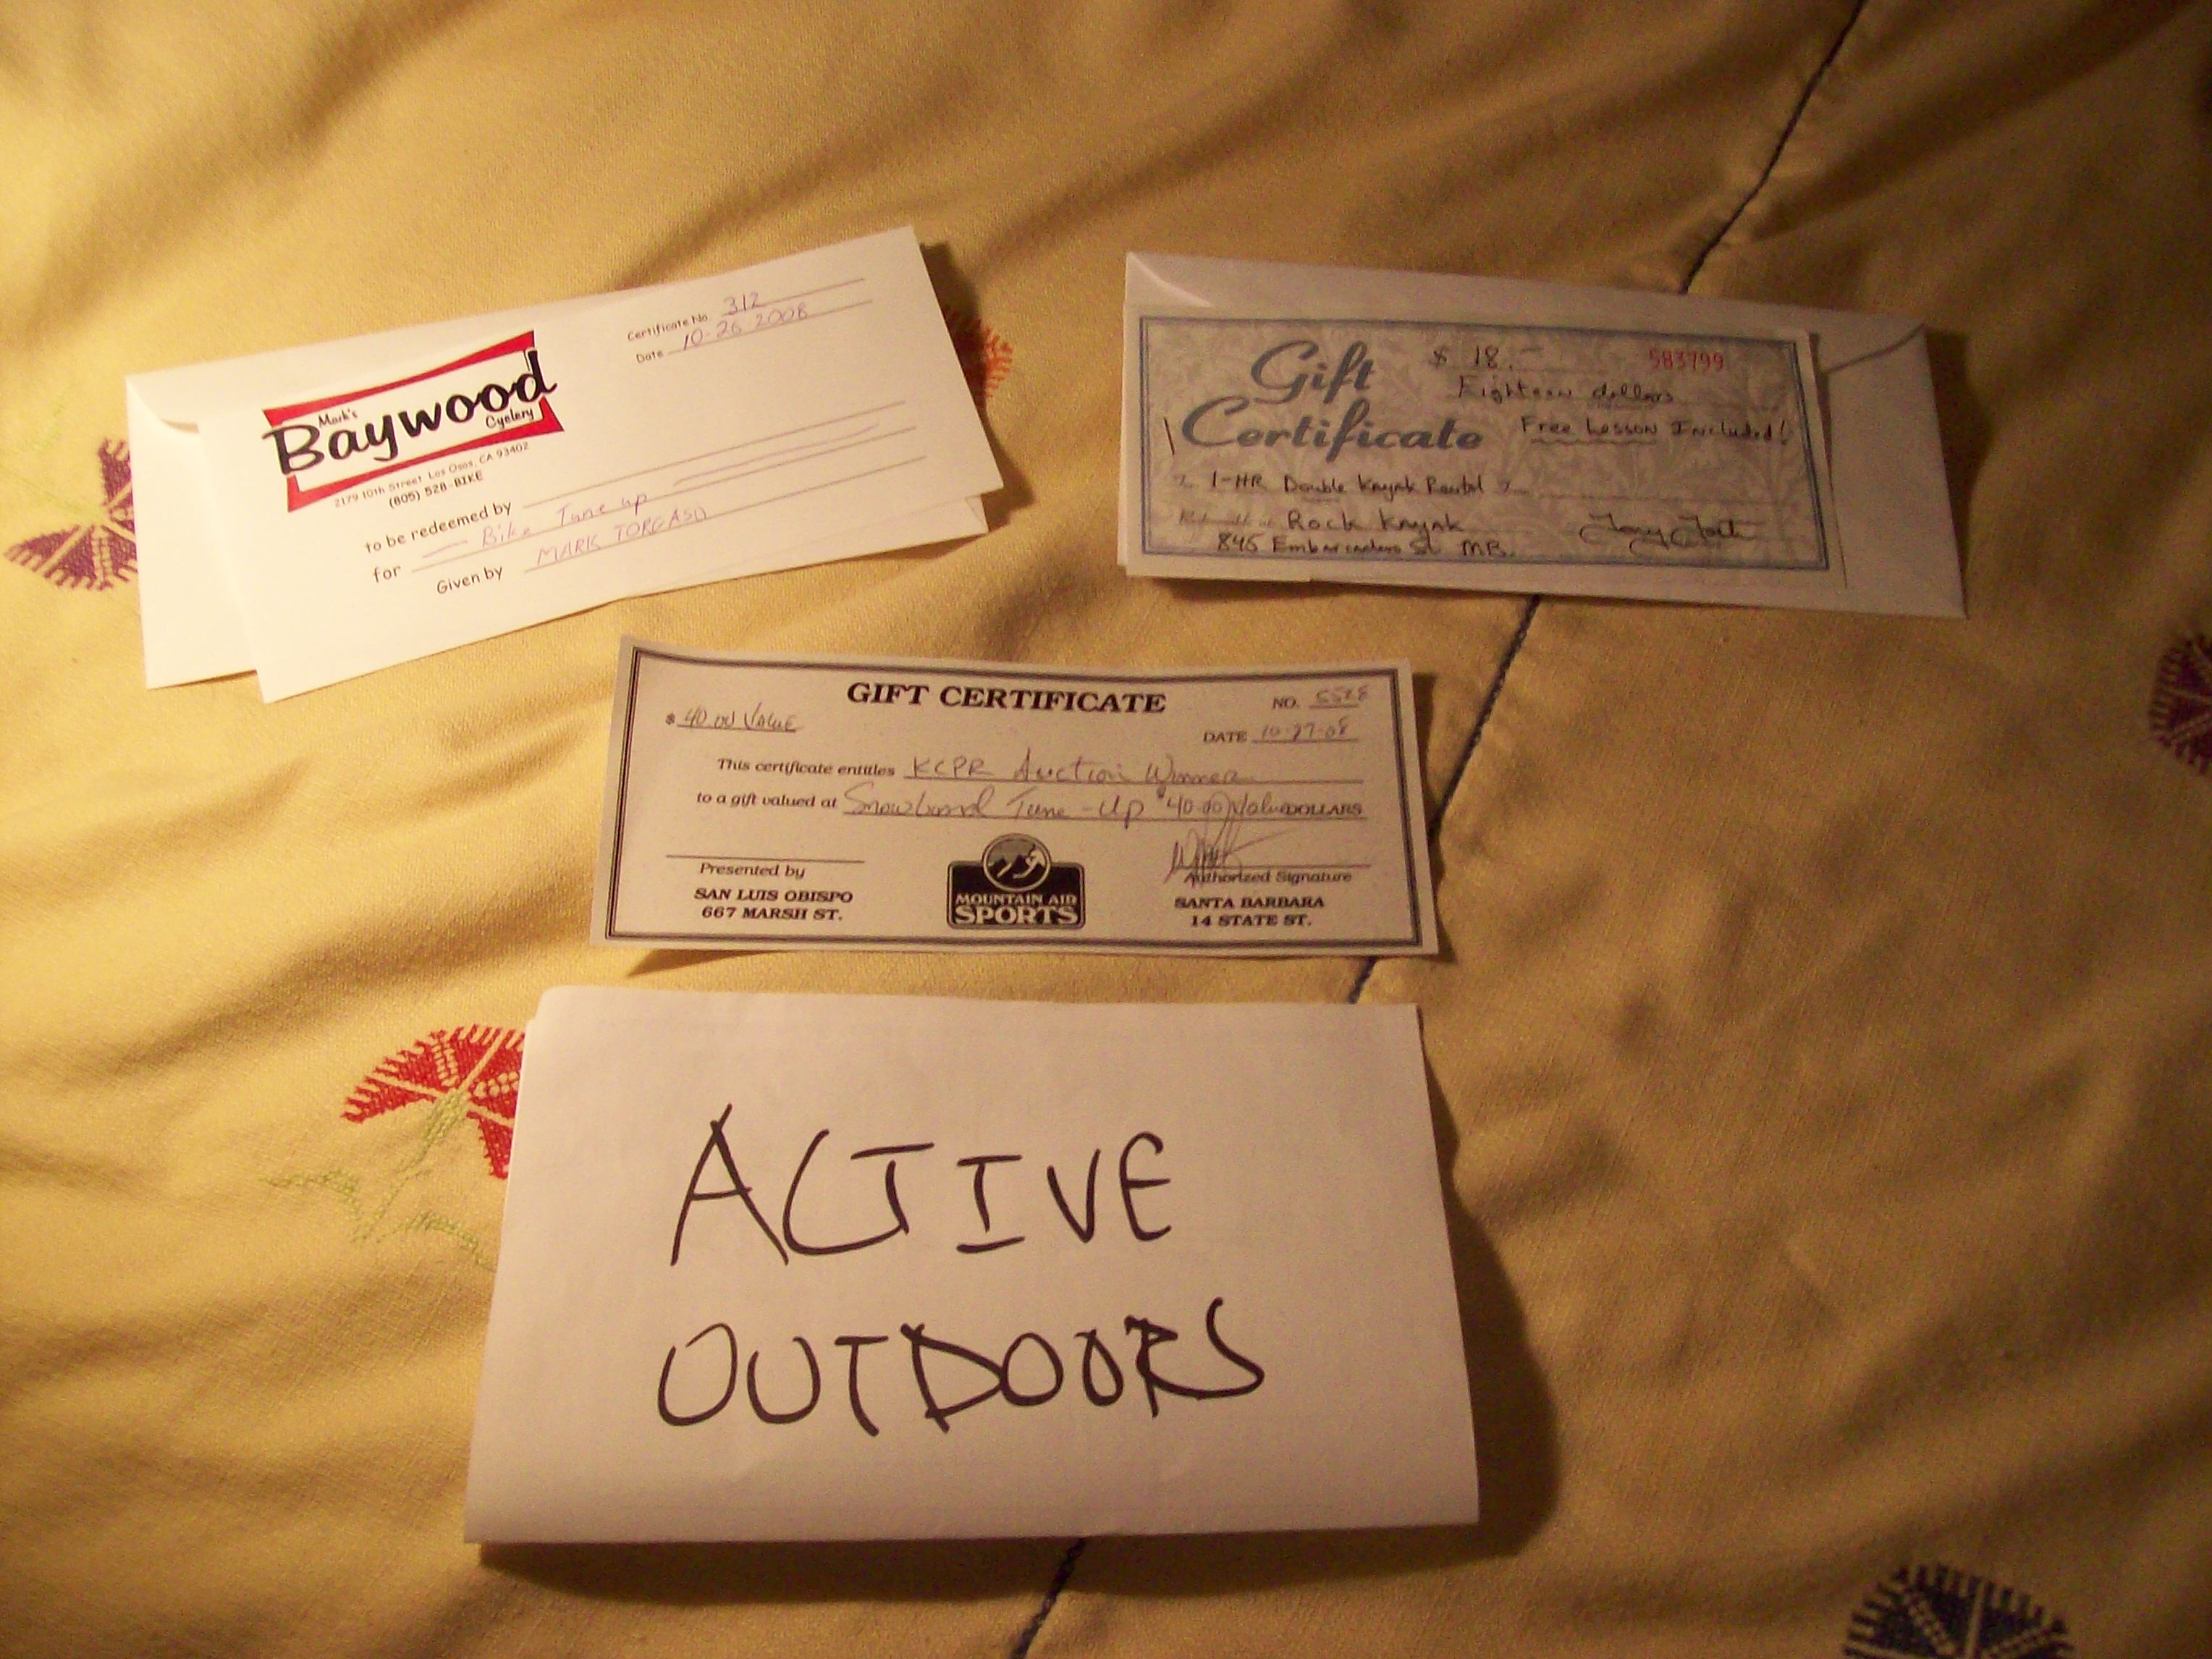 Mark's
Baywood
Cyclery
2179 10th Street Los Osos, CA 93402
(805) 528-BIKE
Certificate No. 312
Date 10-26 2008
to be redeemed by
for Bike Tune up
Given by MARK TORGASD
Gift
Certificate
$ 18.-
583799
Eighteen dollars
Free Lesson Included!
1-HR Double Kayak Rental
Rock Kayak
845 Embarcadero St. M.B.
GIFT CERTIFICATE
NO. 5528
$ 40.00 Value
DATE 10-27-08
This certificate entitles KCPR Auction Winner
to a gift valued at Snowboard Tune-Up $40.00 Value DOLLARS
Presented by
Authorized Signature
SAN LUIS OBISPO
667 MARSH ST.
MOUNTAIN AIR
SPORTS
SANTA BARBARA
14 STATE ST.
ACTIVE
OUTDOORS